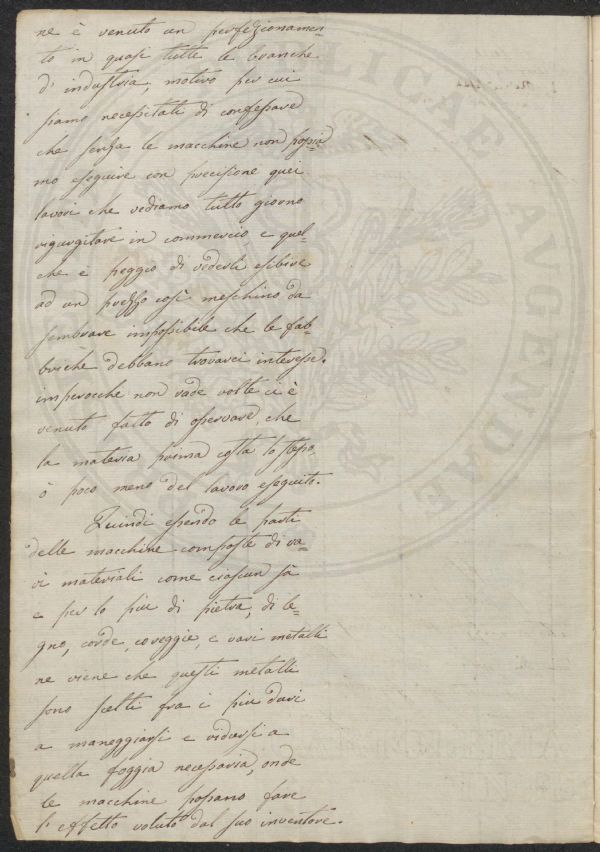 ne è venuto un perfezionamen=
to in quasi tutte le branche
d'industria, motivo per cui
siamo necessitati di confessare
che senza le macchine non possia=
mo eseguire con precisione quei
lavori che vediamo tutto giorno
rigurgitare in commercio e quel=
che è peggio di vederli esibire
ad un prezzo così meschino da
sembrare impossibile che le fab=
briche debbano trovarci interesse.
imperocche non rade volte ci è
venuto fatto di osservare, che
la materia prima costa lo stesso,
o poco meno del lavoro eseguito.
Quindi essendo le parti
delle macchine composte di va=
ri materiali come ciascun sà
e per lo più di pietra, di le=
gno, corde, coreggie, e vari metalli
ne viene che questi metalli
sono scelti fra i più duri
a maneggiarsi e ridursi a
quella foggia necessaria, onde
le macchine possano fare
l'effetto voluto dal suo inventore.
PUBLICAE AUGENDAE